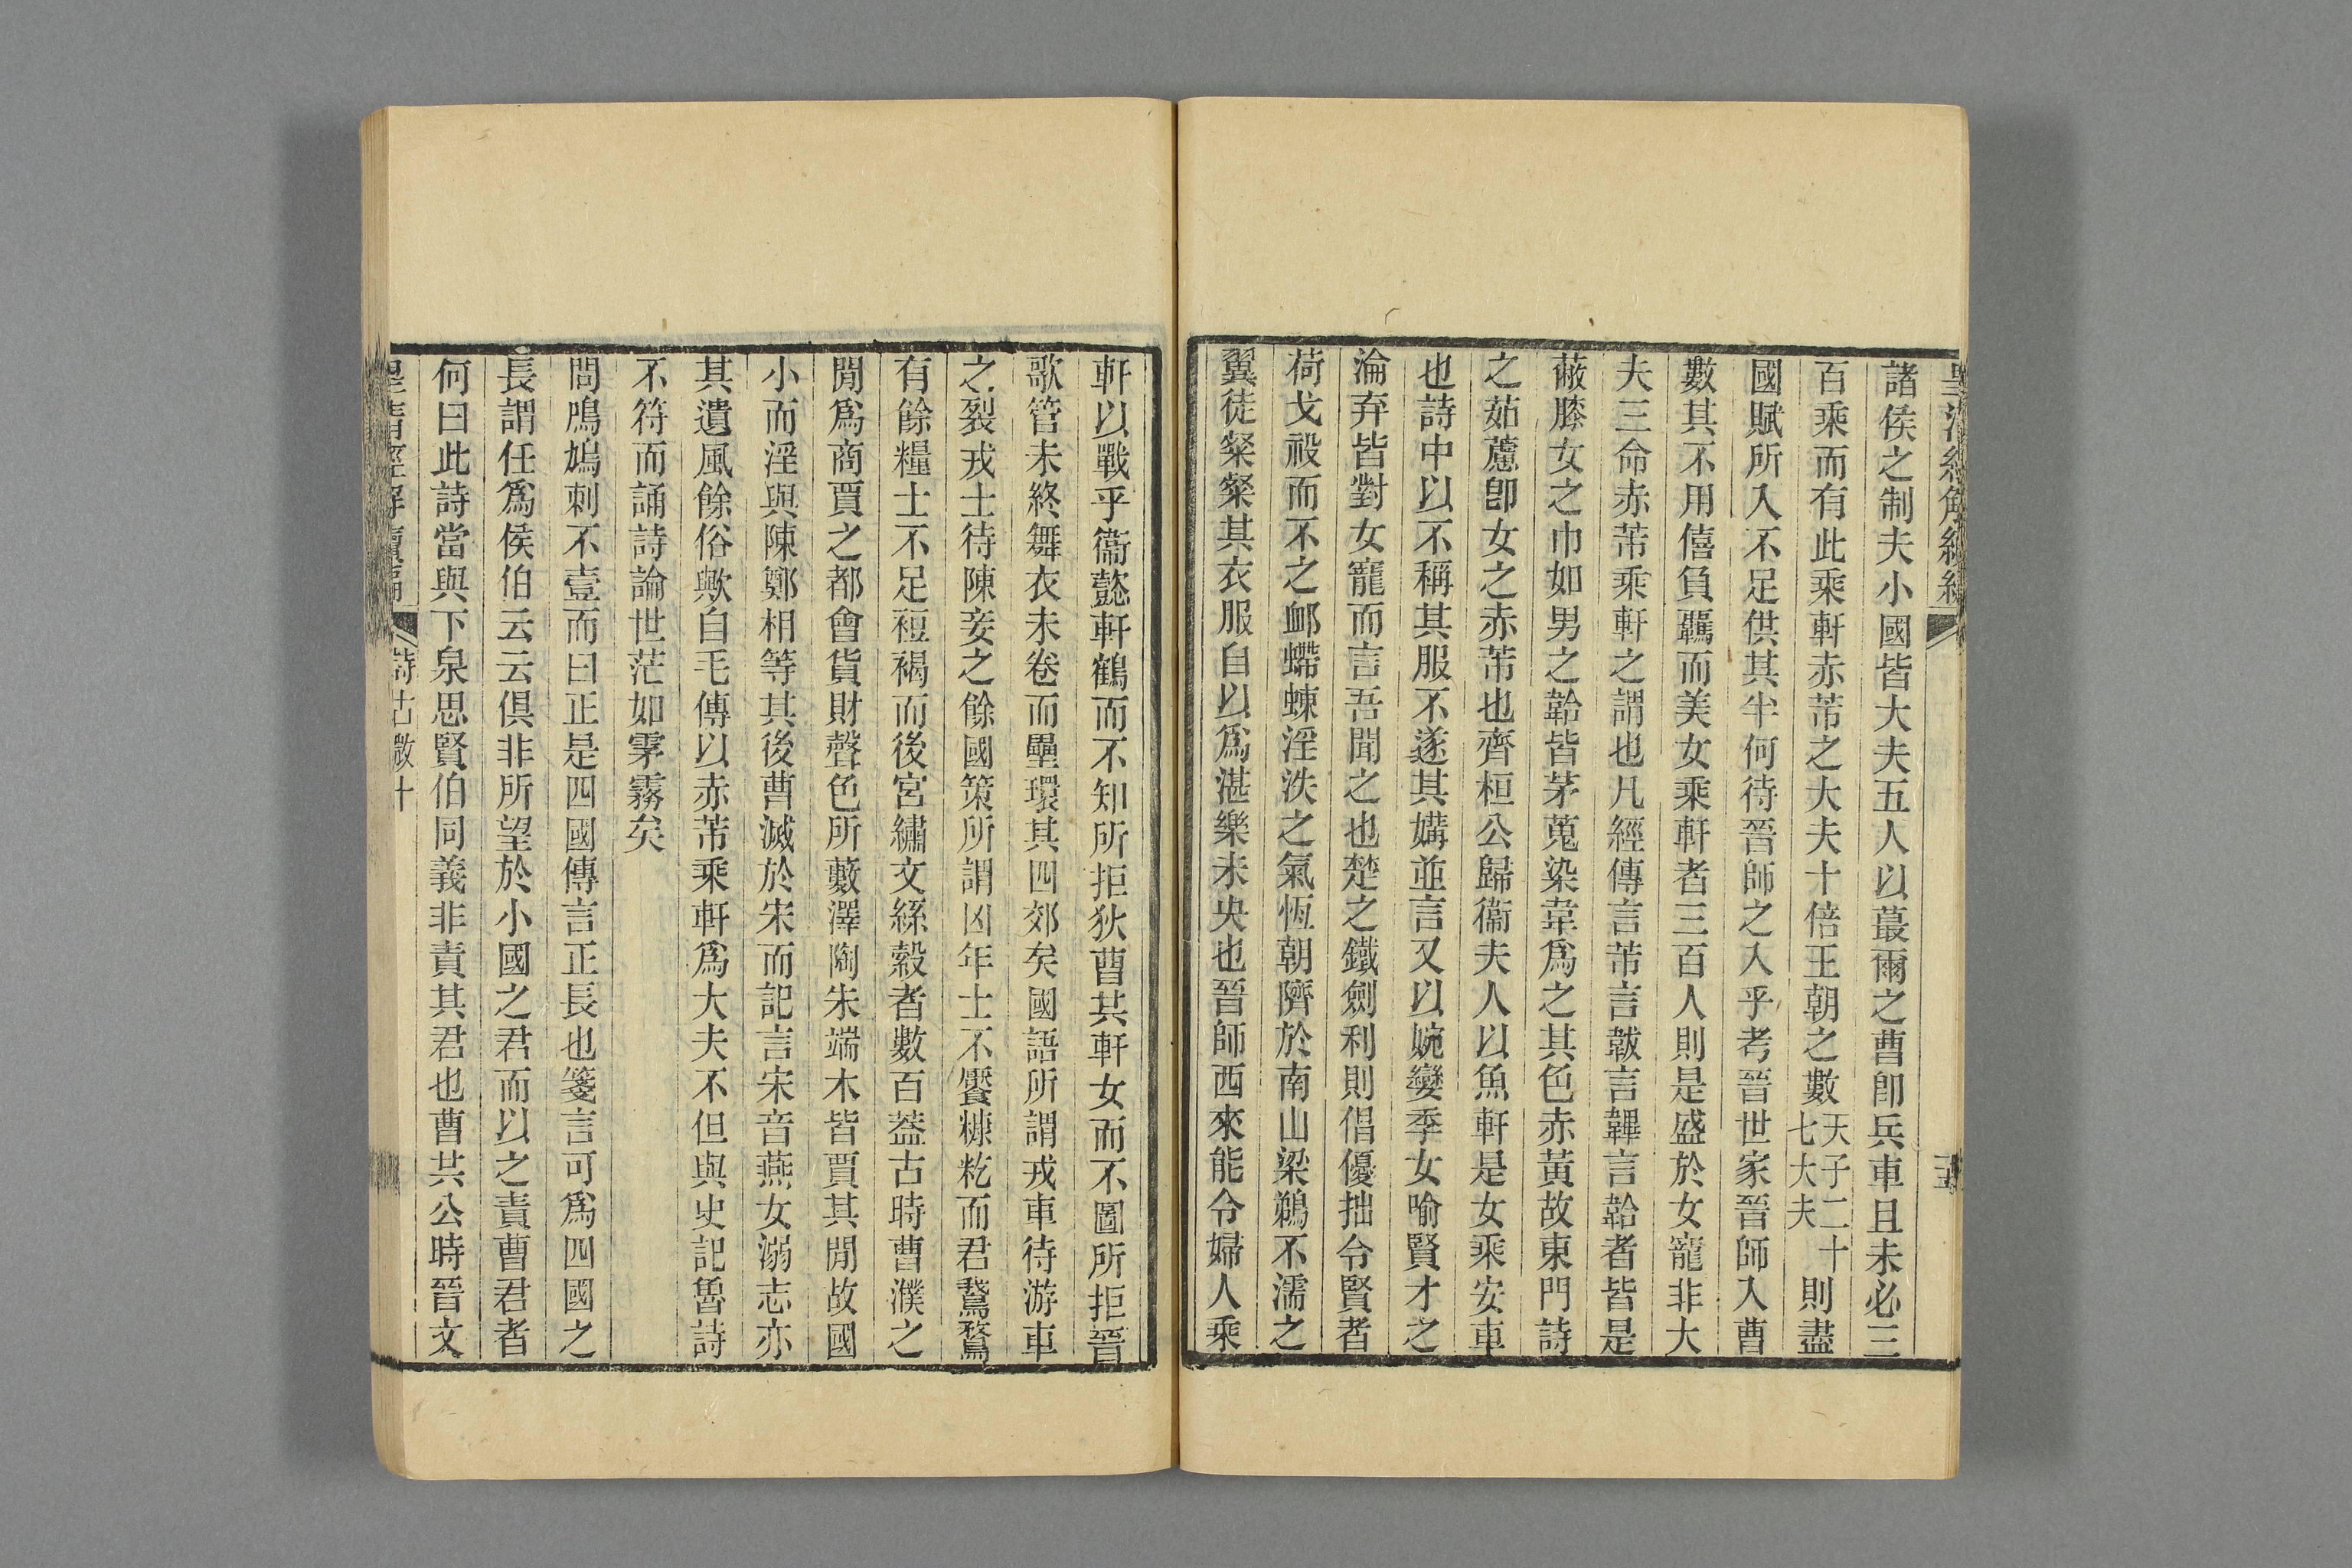 諸侯之制夫小國皆大夫五人以蕞爾之曹卽兵車且未必三
百乘而有此乘軒赤芾之大夫十倍王朝之數天子二十七大夫則盡
國賦所入不足供其半何待晉師之入乎考晉世家晉師入曹
數其不用僖負羈而美女乘軒者三百人則是盛於女寵非大
夫三命赤芾乘軒之謂也凡經傳言芾言韍言韠言韐者皆是
蔽膝女之巾如男之韐皆茅蒐染韋爲之其色赤黃故東門詩
之茹藘卽女之赤芾也齊桓公歸衞夫人以魚軒是女乘安車
也詩中以不稱其服不遂其媾並言又以婉孌季女喻賢才之
淪弃皆對女寵而言吾聞之也楚之鐵劍利則倡優拙令賢者
荷戈祋而不之卹蝃蝀淫泆之氣恆朝隮於南山梁鵜不濡之
翼徒粲粲其衣服自以爲湛樂未央也晉師西來能令婦人乘
軒以戰乎衞懿軒鶴而不知所拒狄曹共軒女而不圖所拒晉
歌管未終舞衣未卷而壘環其四郊矣國語所謂戎車待游車
之裂戎士待陳妾之餘國策所謂凶年士不饜糠籺而君鵞鶩
有餘糧士不足裋褐而後宮繡文絲縠者數百蓋古時曹濮之
閒爲商賈之都會貨財聲色所藪澤陶朱端木皆賈其閒故國
小而淫與陳鄭相等其後曹滅於宋而記言宋音燕女溺志亦
其遺風餘俗歟自毛傳以赤芾乘軒爲大夫不但與史記魯詩
不符而誦詩論世茫如霿霧矣
問鳲鳩刺不壹而曰正是四國傳言正長也箋言可爲四國之
長謂任爲侯伯云云俱非所望於小國之君而以之責曹君者
何曰此詩當與下泉思賢伯同義非責其君也曹共公時晉文
皇清經解續編 詩古微十